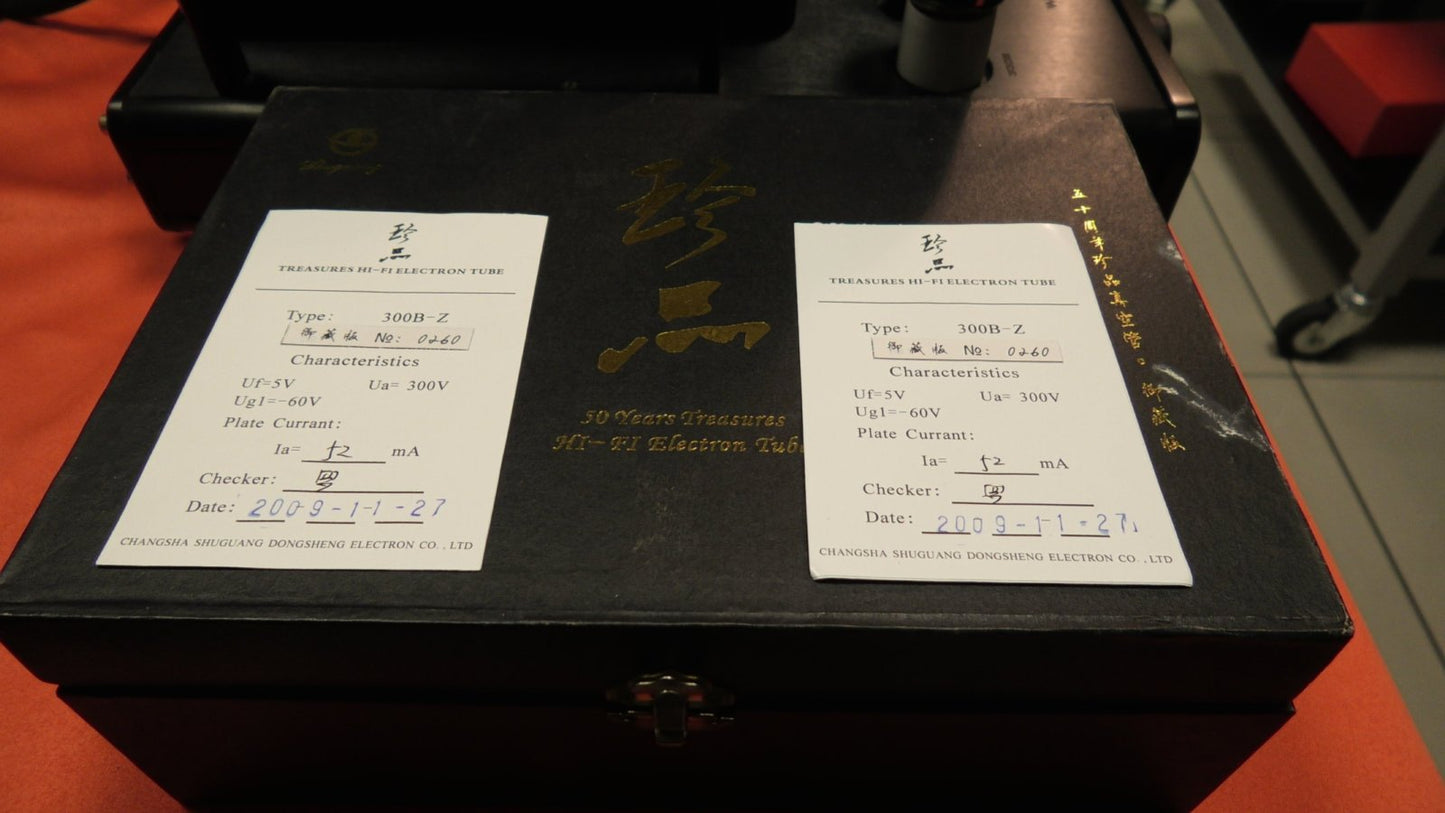 Shuguang
珍品
50 Years Treasures
HI-FI Electron Tube
五十周年珍品真空管·御藏版
珍品
TREASURES HI-FI ELECTRON TUBE
Type: 300B-Z
御藏版 No: 0260
Characteristics
Uf=5V Ua= 300V
Ug1=-60V
Plate Currant:
Ia= 52 mA
Checker:
Date: 2009-11-27
CHANGSHA SHUGUANG DONGSHENG ELECTRON CO.,LTD
珍品
TREASURES HI-FI ELECTRON TUBE
Type: 300B-Z
御藏版 No: 0260
Characteristics
Uf=5V Ua= 300V
Ug1=-60V
Plate Currant:
Ia= 52 mA
Checker:
Date: 2009-11-27
CHANGSHA SHUGUANG DONGSHENG ELECTRON CO.,LTD